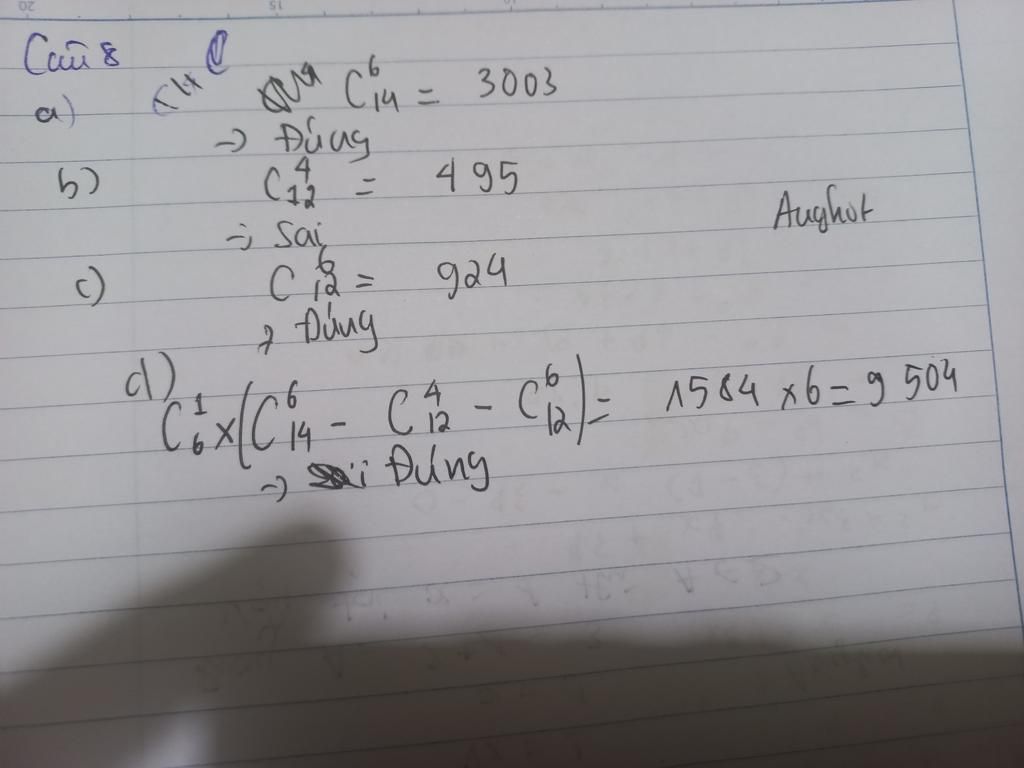 Câu 8
a) C₁₄⁶ = 3003
→ Đúng
b) C₁₂⁴ = 495
→ Sai
Aughot
c) C₁₂⁶ = 924
→ Đúng
d)
C₆¹ × (C₁₄⁶ - C₁₂⁴ - C₁₂⁶) = 1584 × 6 = 9 504
→ Đúng